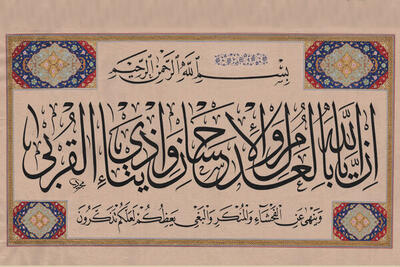 بِسْمِ اللَّهِ الرَّحْمٰنِ الرَّحِيمِ
إِنَّ اللَّهَ يَأْمُرُ بِالْعَدْلِ وَالْإِحْسَانِ وَإِيتَاءِ ذِي الْقُرْبَى
وَيَنْهَى عَنِ الْفَحْشَاءِ وَالْمُنْكَرِ وَالْبَغْيِ يَعِظُكُمْ لَعَلَّكُمْ تَذَكَّرُونَ